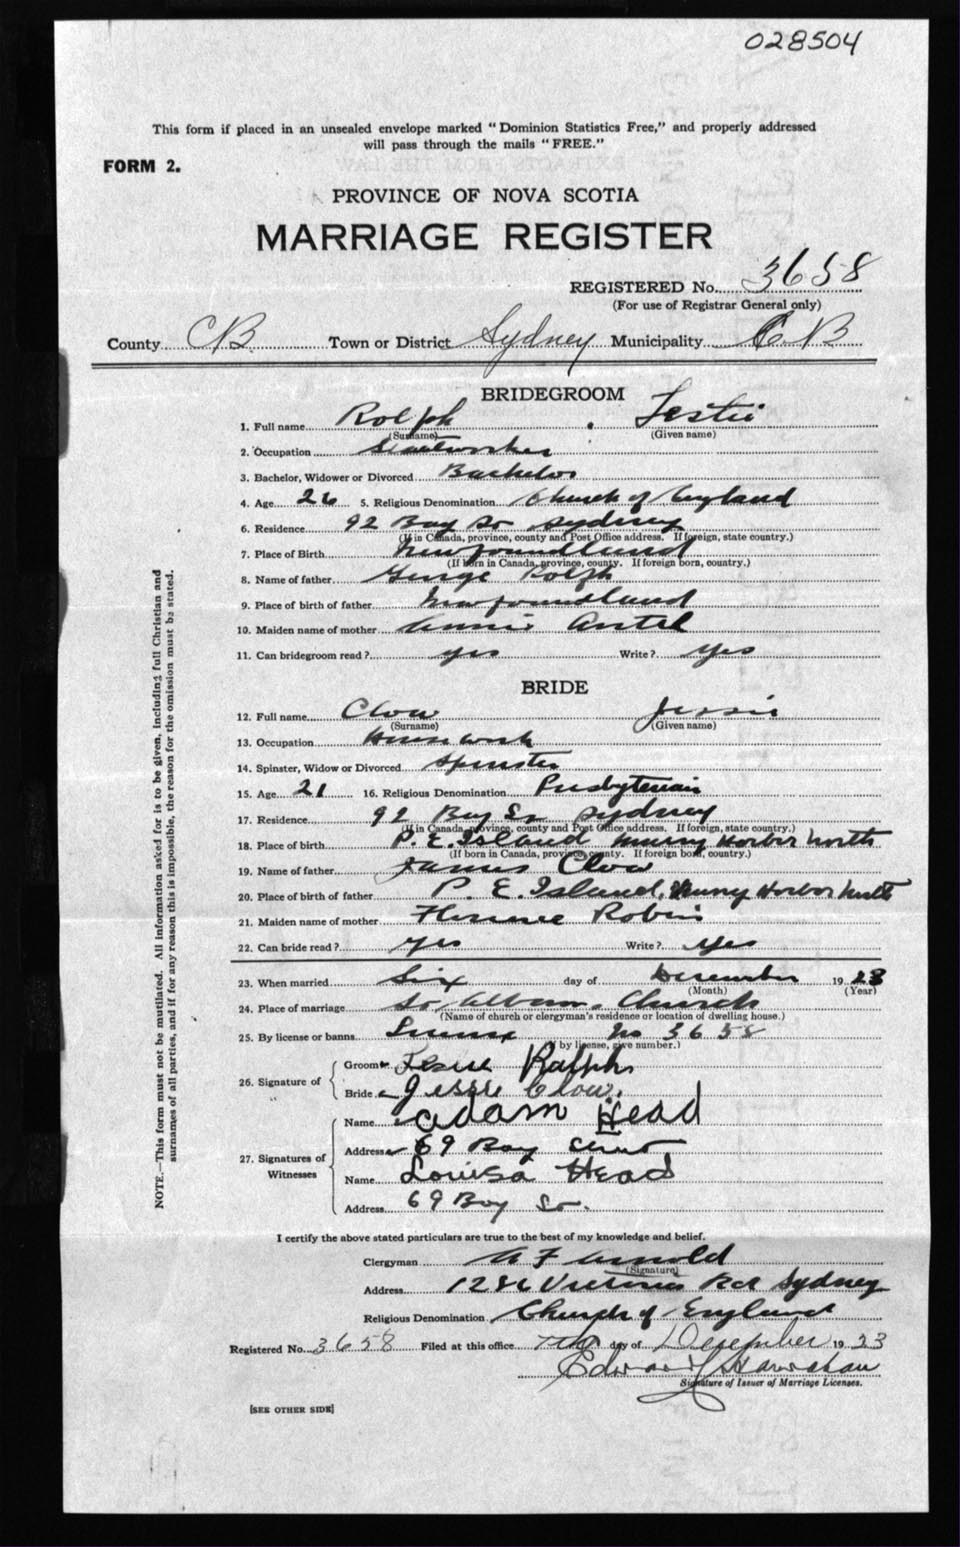 028504
This form if placed in an unsealed envelope marked "Dominion Statistics Free," and properly addressed
will pass through the mails "FREE."
FORM 2.
PROVINCE OF NOVA SCOTIA
MARRIAGE REGISTER
REGISTERED No. 3658
(For use of Registrar General only)
County CB Town or District Sydney Municipality C B
BRIDEGROOM
1. Full name Rolph
(Surname) (Given name)
2. Occupation Steelworker
3. Bachelor, Widower or Divorced Bachelor
4. Age 26 5. Religious Denomination Church of England
6. Residence 92 Bay St Sydney
(If in Canada, province, county and Post Office address. If foreign, state country.)
7. Place of Birth Newfoundland
(If born in Canada, province, county. If foreign born, country.)
8. Name of father George Rolph
9. Place of birth of father Newfoundland
10. Maiden name of mother Annie
11. Can bridegroom read? yes Write? yes
BRIDE
12. Full name Clow Jessie
(Surname) (Given name)
13. Occupation Housework
14. Spinster, Widow or Divorced Spinster
15. Age 21 16. Religious Denomination Presbyterian
17. Residence 92 Bay St Sydney
(If in Canada, province, county and Post Office address. If foreign, state country.)
18. Place of birth P. E. Island Murry Horbor North
(If born in Canada, province, county. If foreign born, country.)
19. Name of father James Clow
20. Place of birth of father P. E. Island, Murry Horbor North
21. Maiden name of mother Florence Robin
22. Can bride read? yes Write? yes
23. When married Six day of December 1923
(Month) (Year)
24. Place of marriage St Albans Church
(Name of church or clergyman's residence or location of dwelling house.)
25. By license or banns No 3658
(If by license, give number.)
26. Signature of Groom Ralph
Bride Jessie Clow.
27. Signatures of Witnesses
Name Adam Head
Address 69 Bay
Name Louisa Head
Address 69 Bay St.
I certify the above stated particulars are true to the best of my knowledge and belief.
Clergyman A F Arnold
(Signature)
Address Victoria Rd Sydney
Religious Denomination Church of England
Registered No. 3658 Filed at this office day of December 1923
Signature of Issuer of Marriage Licenses.
[SEE OTHER SIDE]
NOTE.—This form must not be mutilated. All information asked for is to be given, including full Christian and
surnames of all parties, and if for any reason this is impossible, the reason for the omission must be stated.